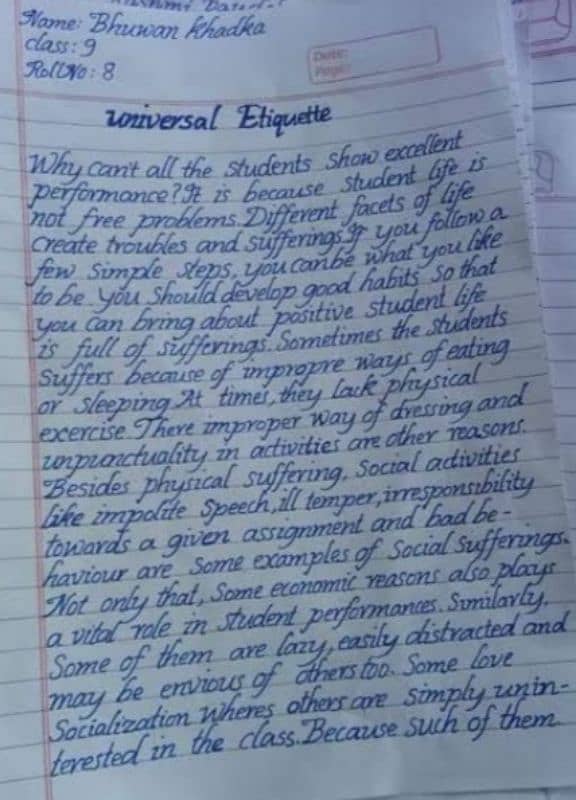 Name: Bhuwan Khadka
class: 9
RollNo: 8
Date:
Page:
universal Etiquette
Why can't all the students show excellent
performance? It is because student life is
not free problems. Different facets of life
create troubles and sufferings. If you follow a
few simple steps, you can be what you like
to be. you should develop good habits so that
you can bring about positive student life
is full of sufferings. Sometimes the students
suffers because of impropre ways of eating
or sleeping. At times, they lack physical
exercise. There improper way of dressing and
unpunctuality in activities are other reasons.
Besides physical suffering. Social activities
like impolite speech, ill temper, irresponsibility
towards a given assignment and bad be-
haviour are some examples of Social Sufferings.
Not only that, some economic reasons also plays
a vital role in student performances. Similarly,
Some of them are lazy, easily distracted and
may be envious of others too. Some love
Socialization wheres others are simply unin-
terested in the class. Because such of them